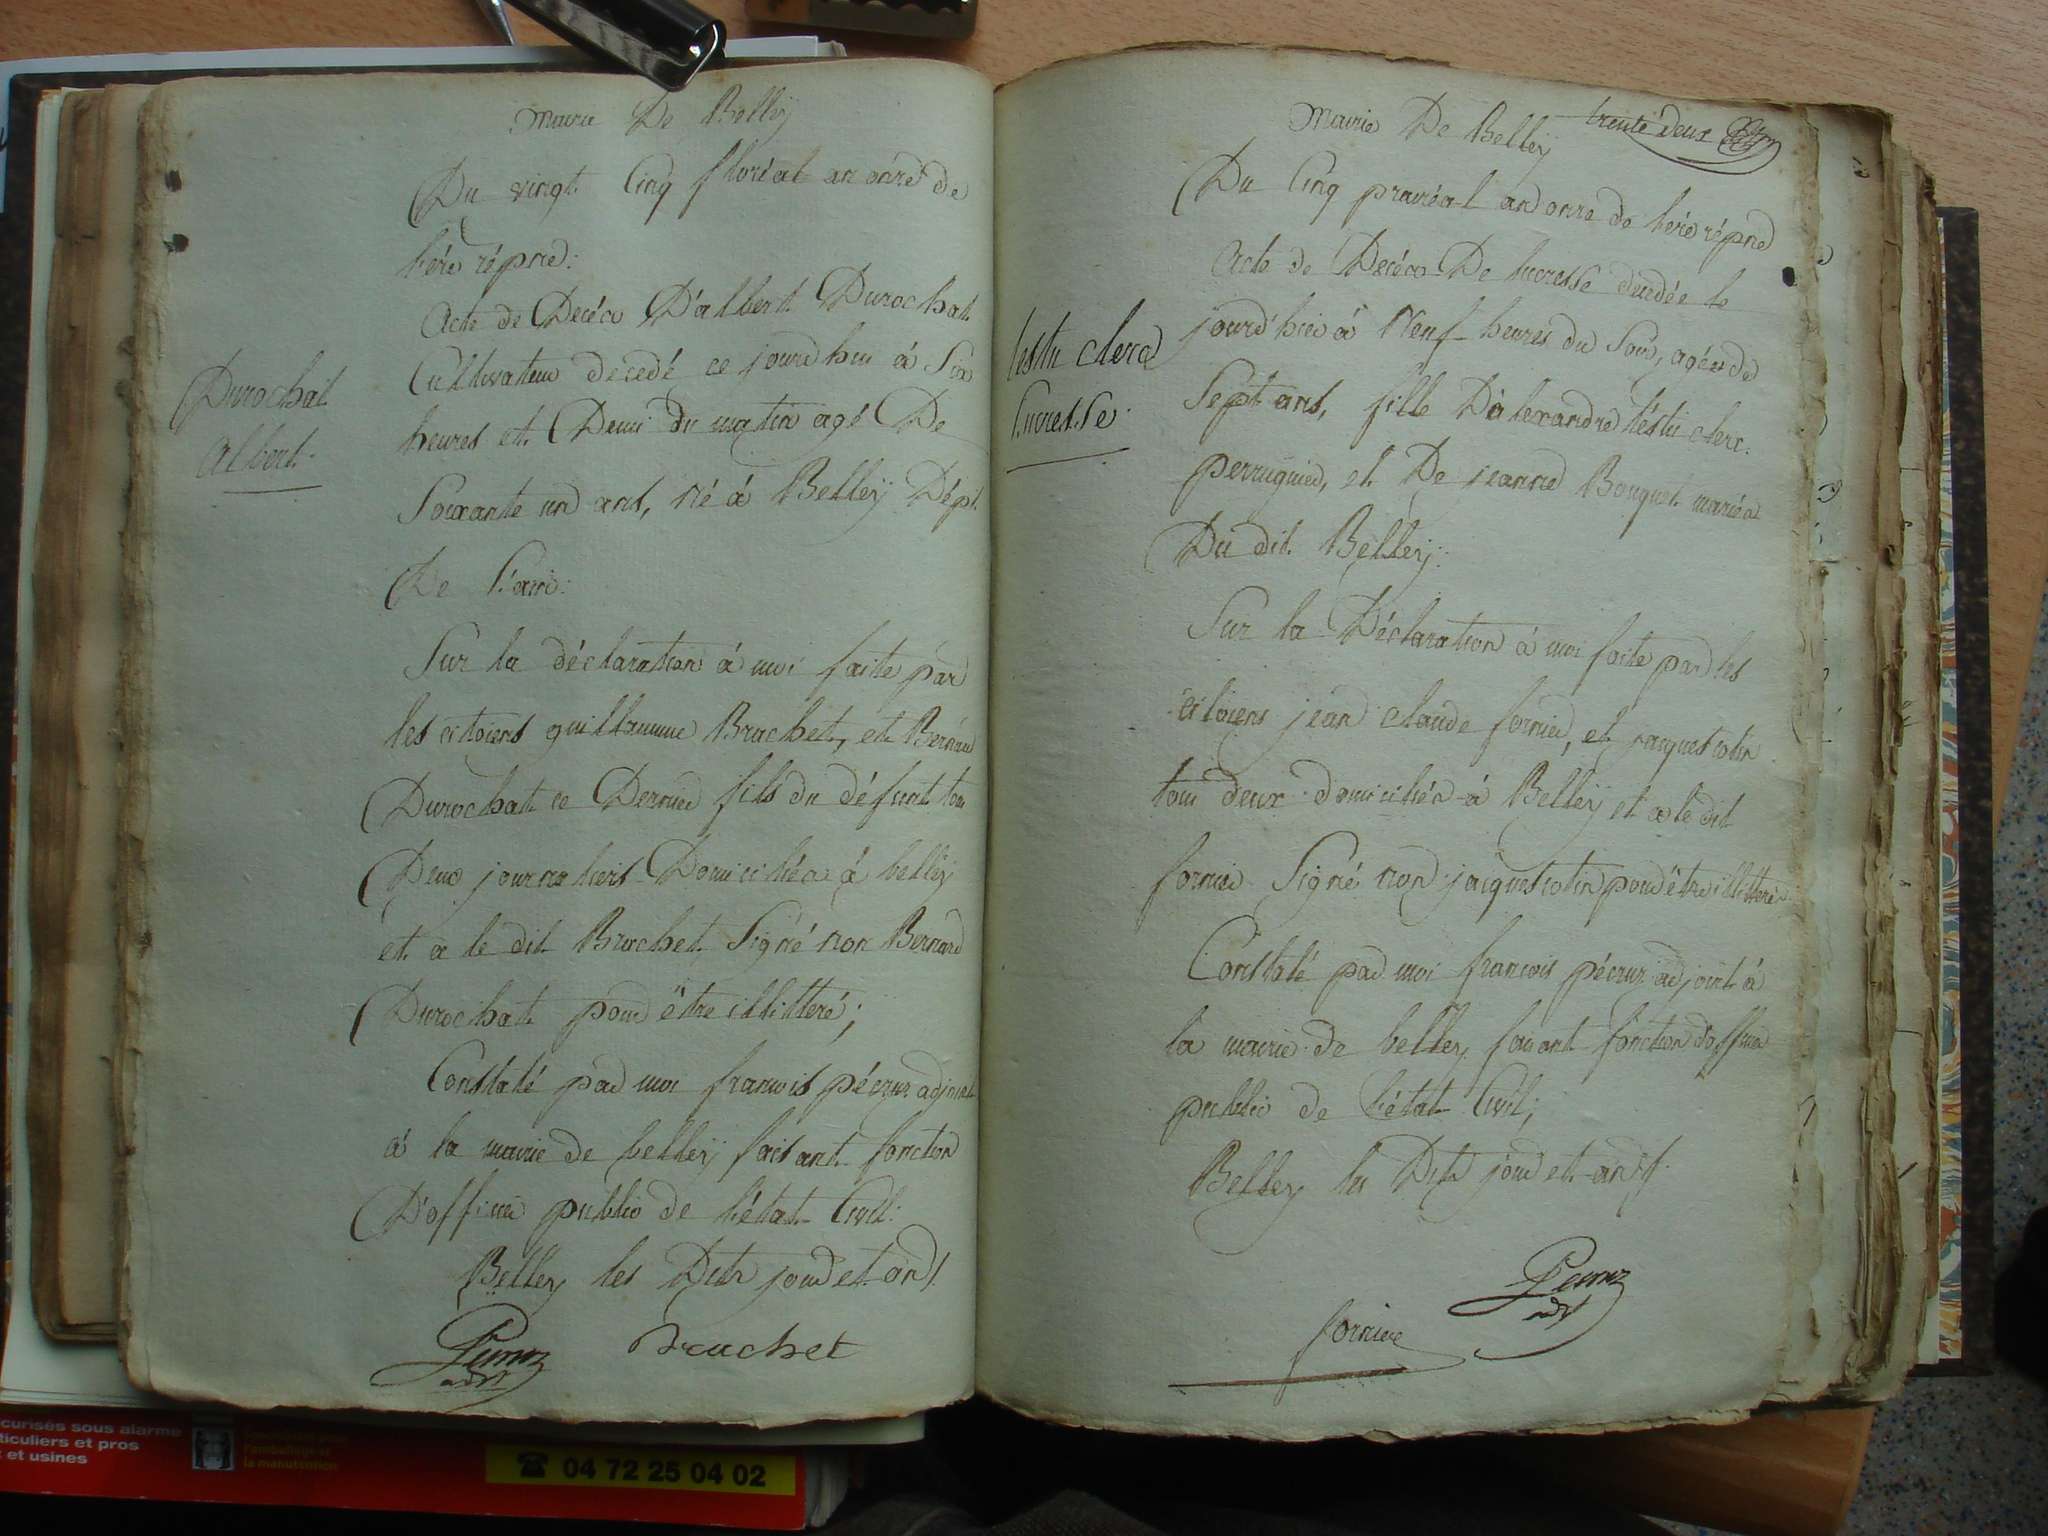 Mairie De Belleÿ
Du vingt Cinq floréal an onze de
l'ére répne:
Acte de Décés D'albert Durochat
Cultivateur decedé ce jourd'hui à Six
heures et Demi du matin agé De
Soixante un ans, né à Belleÿ Dépt.
De l'ain:
Durochat
Albert.
Sur la déclaration à moi faite par
les citoiens guillaume Brachet, et Bernard
Durochat ce Dernier fils du défunt tous
Deux journaliers Domiciliés à belleÿ
et a le dit Brachet Signé non Bernard
Durochat pour être illitteré;
Constaté par moi francois pécruz adjoint
à la mairie de belleÿ faisant fonction
D'officier public de l'état Civil:
Belley les Dits jour et an
Pecruz
adjt
Brachet
Mairie De Belleÿ
trente deux
Du Cinq prairéal an onze de l'ére répne
Acte de Décés De lucresse decedée le
jourd'hier à Neuf heures du Soir, agée de
Sept ans, fille D'alexandre testu clerc
perruquier, et De jeanne Bouquet mariés
Du dit Belleÿ:
testu clerc
Lucresse.
Sur la Déclaration à moi faite par les
citoiens jean claude fornier, et jacques cotin
tous deux domiciliés à Belleÿ et a le dit
fornier Signé non jacques cotin pour être illitteré.
Constaté par moi francois pécruz adjoint à
la mairie de belley, faisant fonction d'officier
public de l'état Civil;
Belley les Dits jour et an
Pecruz
adjt
fornier
curisés sous alarme
ticuliers et pros
et usines
l'emballage et
la manutention
☎ 04 72 25 04 02